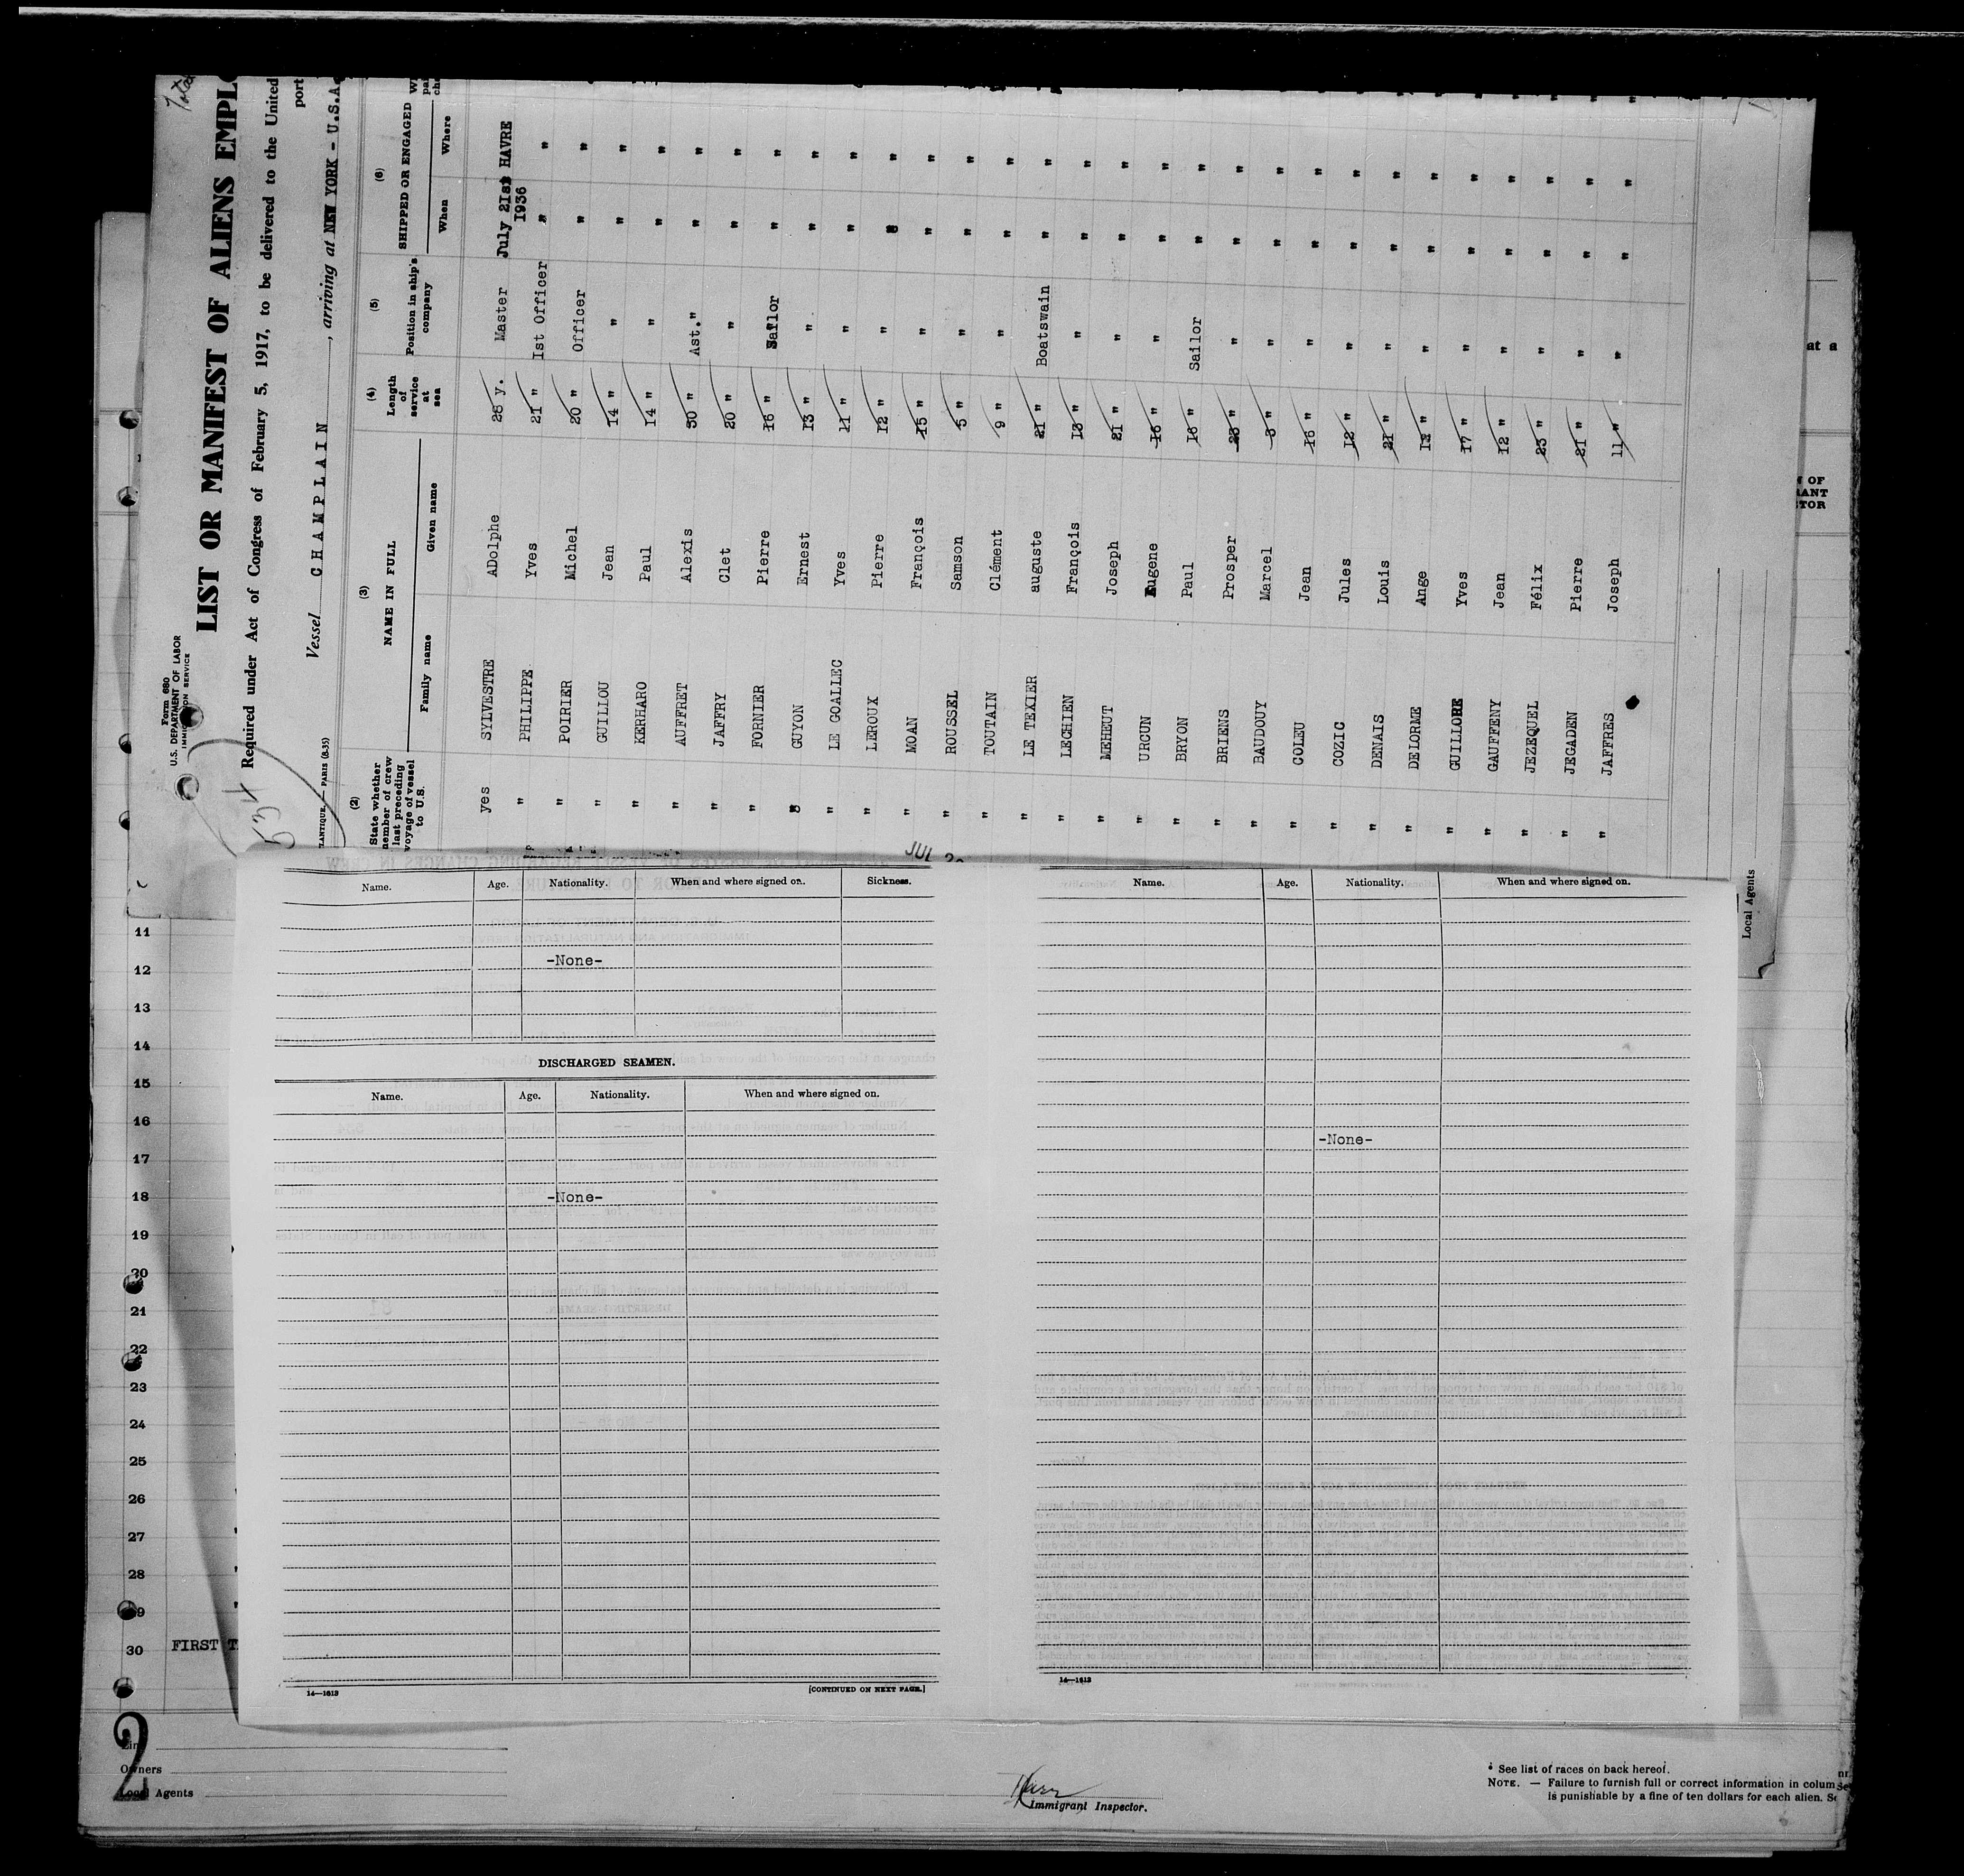 Total
Form 680
U.S. DEPARTMENT OF LABOR
IMMIGRATION SERVICE
LIST OR MANIFEST OF ALIENS EMPL
Required under Act of Congress of February 5, 1917, to be delivered to the United
port
Vessel CHAMPLAIN, arriving at NEW YORK - U.S.A.
534
LANTIQUE. — PARIS (8-35)
(2) (3) (4) (5) (6)
State whether member of crew last preceding voyage of vessel to U.S. NAME IN FULL Length of service at sea Position in ship's company SHIPPED OR ENGAGED
Family name Given name When Where
yes SYLVESTRE ADolphe 25 y. Master July 21st 1936 HAVRE
" PHILIPPE Yves 21 " Ist Officer " "
" POIRIER Michel 20 " Officer " "
" GUILLOU Jean 14 " " " "
" KERHARO Paul 14 " " " "
" AUFFRET Alexis 30 " Ast." " "
" JAFFRY Clet 20 " " " "
" FORNIER Pierre 16 " Sailor " "
" GUYON Ernest 13 " " " "
" LE GOALLEC Yves 11 " " " "
" LEROUX Pierre 12 " " " "
" MOAN François 15 " " " "
" ROUSSEL Samson 5 " " " "
" TOUTAIN Clément 9 " " " "
" LE TEXIER auguste 21 " Boatswain " "
" LECHIEN François 13 " " " "
" MEHEUT Joseph 21 " " " "
" URGUN Eugene 16 " " " "
" BRYON Paul 18 " Sailor " "
" BRIENS Prosper 23 " " " "
" BAUDOUY Marcel 3 " " " "
" COLEU Jean 16 " " " "
" COZIC Jules 12 " " " "
" DENAIS Louis 21 " " " "
" DELORME Ange 12 " " " "
" GUILLORE Yves 17 " " " "
" GAUFFENY Jean 12 " " " "
" JEZEQUEL Félix 23 " " " "
" JEGADEN Pierre 21 " " " "
" JAFFRES Joseph 11 " " " "
JUL
Local Agents
at a
N OF
RANT
TOR
Name. Age. Nationality. When and where signed on. Sickness.
-None-
DISCHARGED SEAMEN.
Name. Age. Nationality. When and where signed on.
-None-
14—1613
[CONTINUED ON NEXT PAGE.]
Name. Age. Nationality. When and where signed on.
-None-
14—1613
11
12
13
14
15
16
17
18
19
20
21
22
23
24
25
26
27
28
29
30 FIRST T
2
Line
Owners
Local Agents
Immigrant Inspector.
* See list of races on back hereof.
NOTE. — Failure to furnish full or correct information in colum
is punishable by a fine of ten dollars for each alien. Se